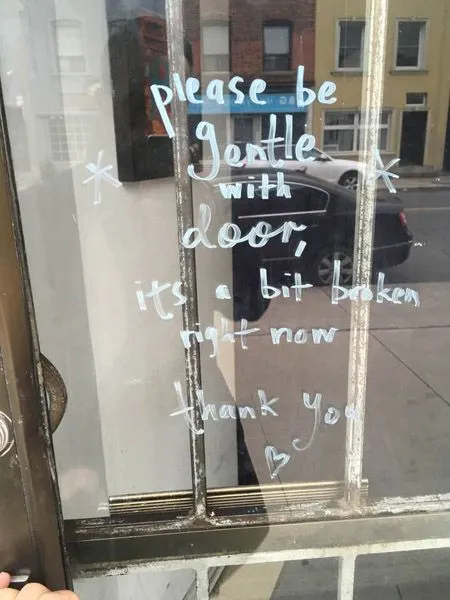 please be
gentle
* with *
door,
it's a bit broken
right now
thank you
♡